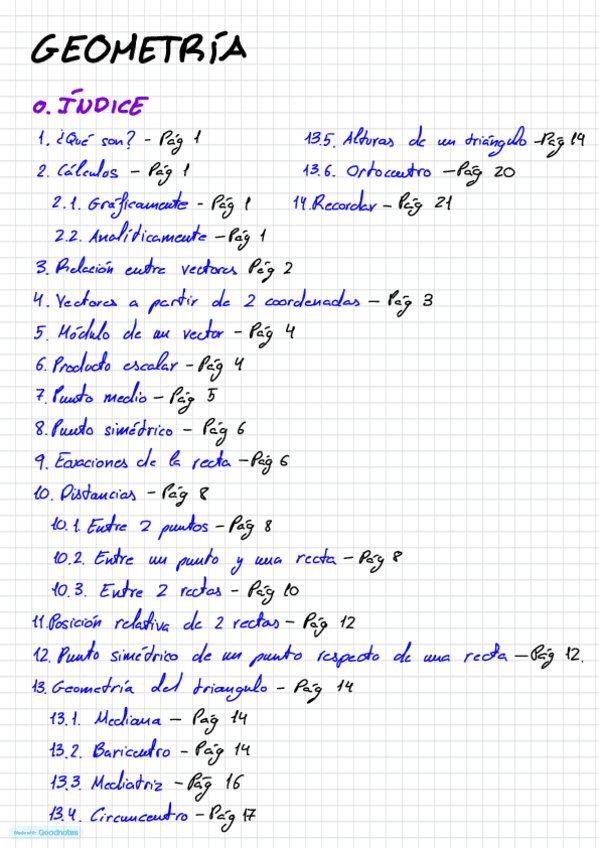 GEOMETRÍA
0. ÍNDICE
1. ¿Qué son? - Pág 1
2. Cálculos - Pág 1
2.1. Gráficamente - Pág 1
2.2. Analíticamente - Pág 1
3. Relación entre vectores Pág 2
4. Vectores a partir de 2 coordenadas - Pág 3
5. Módulo de un vector - Pág 4
6. Producto escalar - Pág 4
7. Punto medio - Pág 5
8. Punto simétrico - Pág 6
9. Ecuaciones de la recta - Pág 6
10. Distancias - Pág 8
10.1. Entre 2 puntos - Pág 8
10.2. Entre un punto y una recta - Pág 8
10.3. Entre 2 rectas - Pág 10
11. Posición relativa de 2 rectas - Pág 12
12. Punto simétrico de un punto respecto de una recta - Pág 12.
13. Geometría del triangulo - Pág 14
13.1. Mediana - Pág 14
13.2. Baricentro - Pág 14
13.3. Mediatriz - Pág 16
13.4. Circuncentro - Pág 17
13.5. Alturas de un triángulo - Pág 19
13.6. Ortocentro - Pág 20
14. Recordar - Pág 21
Made with Goodnotes